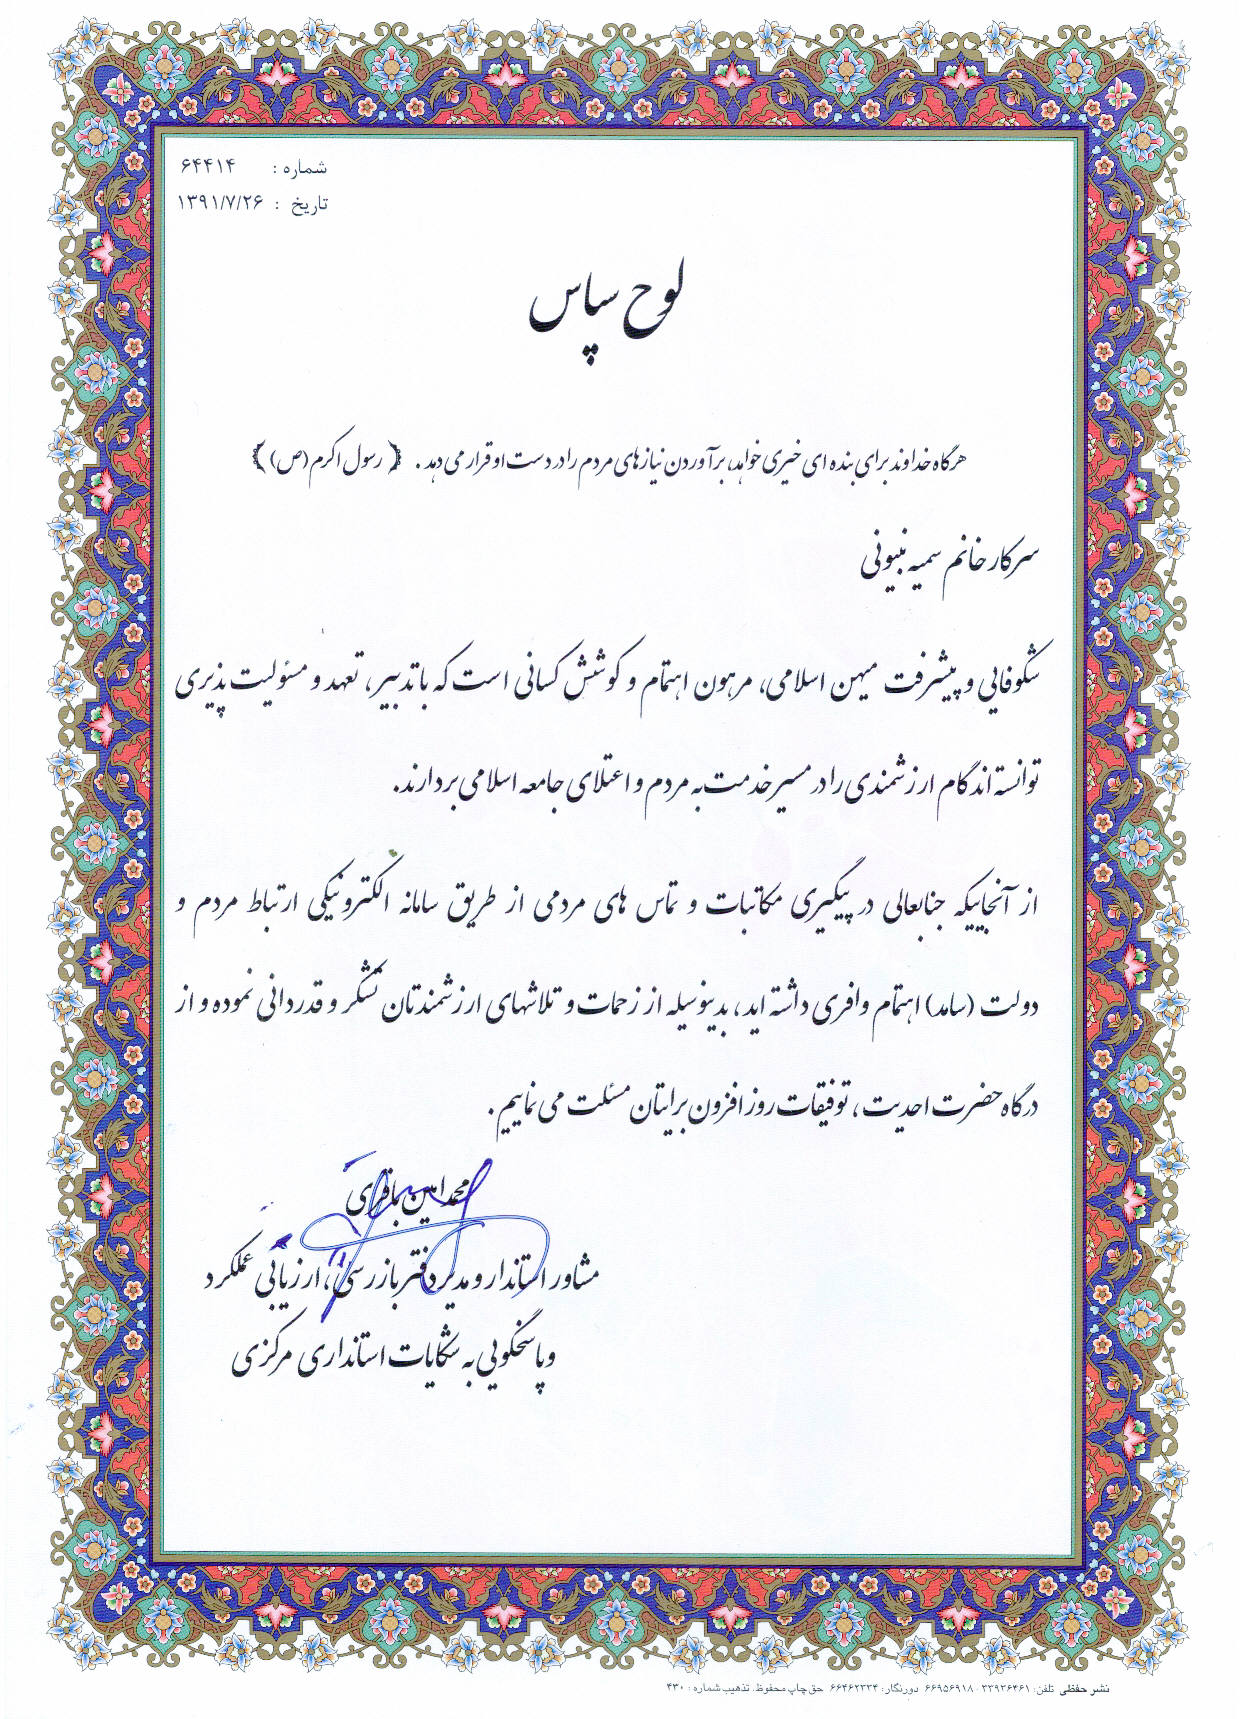 شماره : ۶۴۴۱۴
تاریخ : ۱۳۹۱/۷/۲۶
لوح سپاس
هرگاه خداوند برای بنده ای خیری خواهد، برآوردن نیازهای مردم را در دست او قرار می دهد . ﴿ رسول اکرم (ص) ﴾
سرکار خانم سمیه نبیونی
شکوفایی و پیشرفت میهن اسلامی، مرهون اهتمام و کوشش کسانی است که با تدبیر، تعهد و مسئولیت پذیری
توانسته اند گام ارزشمندی را در مسیر خدمت به مردم و اعتلای جامعه اسلامی بردارند.
از آنجاییکه جنابعالی در پیگیری مکاتبات و تماس های مردمی از طریق سامانه الکترونیکی ارتباط مردم و
دولت (سامد) اهتمام وافری داشته اید، بدینوسیله از زحمات و تلاشهای ارزشمندتان تشکر و قدردانی نموده و از
درگاه حضرت احدیت ، توفیقات روزافزون برایتان مسئلت می نماییم .
محمد امین باقری
مشاور استاندار و مدیر دفتر بازرسی، ارزیابی عملکرد
و پاسخگویی به شکایات استانداری مرکزی
نشر حفظی تلفن: ۳۳۹۳۶۴۶۱ - ۶۶۹۵۶۹۱۸ دورنگار: ۶۶۴۶۲۳۳۴ حق چاپ محفوظ. تذهیب شماره : ۴۳۰